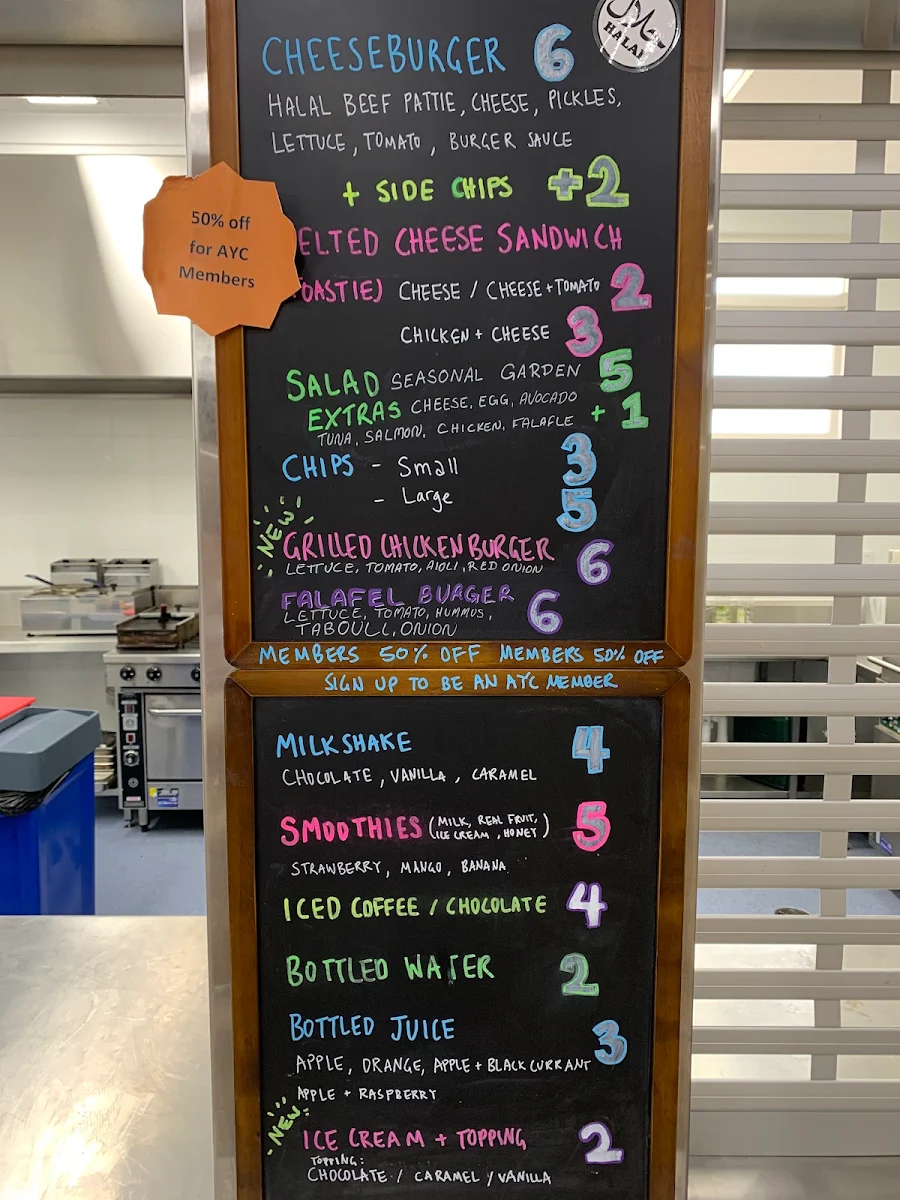 CHEESEBURGER 6
HALAL
HALAL BEEF PATTIE, CHEESE, PICKLES,
LETTUCE, TOMATO, BURGER SAUCE
+ SIDE CHIPS +2
50% off
for AYC
Members
ELTED CHEESE SANDWICH
OASTIE) CHEESE / CHEESE + TOMATO 2
CHICKEN + CHEESE 3
SALAD SEASONAL GARDEN 5
EXTRAS CHEESE, EGG, AVOCADO + 1
TUNA, SALMON, CHICKEN, FALAFLE
CHIPS - Small 3
- Large 5
NEW
GRILLED CHICKEN BURGER 6
LETTUCE, TOMATO, AIOLI, RED ONION
FALAFEL BURGER 6
LETTUCE, TOMATO, HUMMUS,
TABOULI, ONION
MEMBERS 50% OFF MEMBERS 50% OFF
SIGN UP TO BE AN AYC MEMBER
MILKSHAKE 4
CHOCOLATE, VANILLA, CARAMEL
SMOOTHIES (MILK, REAL FRUIT, 5
ICE CREAM, HONEY)
STRAWBERRY, MANGO, BANANA
ICED COFFEE / CHOCOLATE 4
BOTTLED WATER 2
BOTTLED JUICE 3
APPLE, ORANGE, APPLE + BLACKCURRANT
APPLE + RASPBERRY
NEW
ICE CREAM + TOPPING 2
TOPPING:
CHOCOLATE / CARAMEL / VANILLA